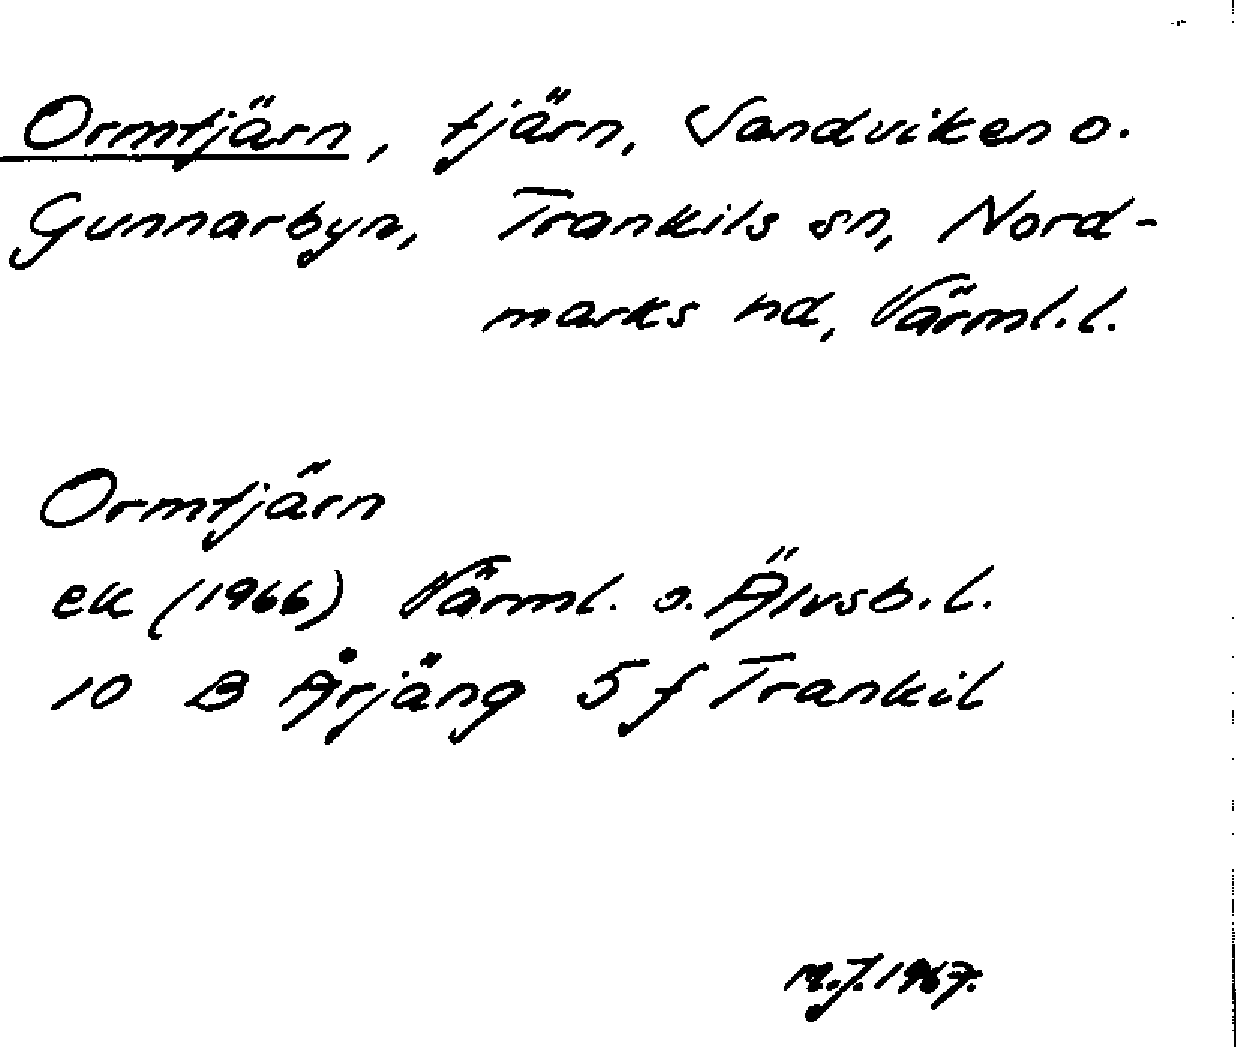 Ormtjärn, tjärn, Sandviken o.
Gunnarbyn, Trankils sn, Nord-
marks hd, Värml. l.
Ormtjärn
ek (1966) Värml. o. Älvsb. l.
10 B Årjäng 5 f Trankil
M.J. 1967.